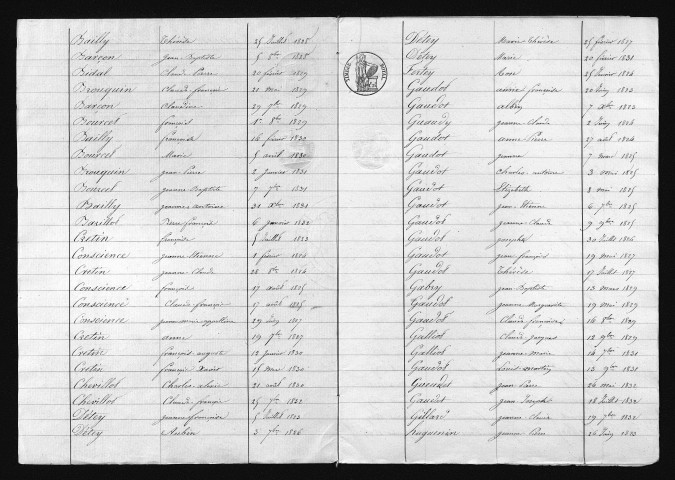 Bailly Thérèse 25 Juillet 1828
Barçon jean Baptiste 5 8bre 1828
Bidal Claude Pierre 20 février 1829
Brouquin Claude françois 21 mai 1829
Barçon Claudine 29 7bre 1829
Bourcet françois 1er 8bre 1829
Bailly françoise 16 février 1830
Bourcet Marie 5 avril 1830
Brouquin jean Pierre 2 janvier 1831
Bourcet jeanne Baptiste 7 7bre 1831
Bailly jeanne antoine 21 Xbre 1831
Barillot Pierre françois 6 janvier 1832
Cretin françois 5 Juillet 1823
Conscience jeanne Etienne 1 février 1824
Cretin jeanne Claude 28 8bre 1824
Conscience françois 17 août 1825
Conscience Claude françois 17 août 1825
Conscience jeanne 29 1827
Cretin anne 19 7bre 1827
Cretin françois auguste 12 janvier 1830
Cretin françois Xavier 15 mai 1830
Chevillot Charles alexis 21 août 1830
Chevillot Claude françois 25 7bre 1832
Détey jeanne françoise 5 Juillet 1823
Détey Aubin 3 7bre 1826
Détey Marie Thérèse 25 février 1827
Détey Marie 20 février 1831
Fertey 25 février 1824
Gaudot françoise 20 1823
Gaudot 7 Xbre 1823
Gaudy jeanne Claude 2 1824
Gaudot anne Pierre 27 août 1824
Gaudot jeanne 7 mai 1825
Gaudot Charles antoine 3 mai 1825
Gaudot Elizabeth 8 mai 1825
Gaudot jean Etienne 6 7bre 1825
Gaudot jeanne Claude 9 9bre 1825
Gaudot joseph 30 Juillet 1826
Gaudot jean françois 19 mai 1827
Gaudot Thérèse 17 Juillet 1827
Gabry jean Baptiste 13 mars 1829
Gaudot jeanne Marguerite 19 mai 1829
Gaudot Claude 16 8bre 1829
Galliot Claude jacques 12 9bre 1829
Galliot jeanne Marie 16 7bre 1831
Gaudot Louis 13 9bre 1831
jean Pierre 26 mai 1832
Gaudot jean Joseph 18 Juillet 1832
jeanne 19 7bre 1832
Huguenin jeanne 26 1823